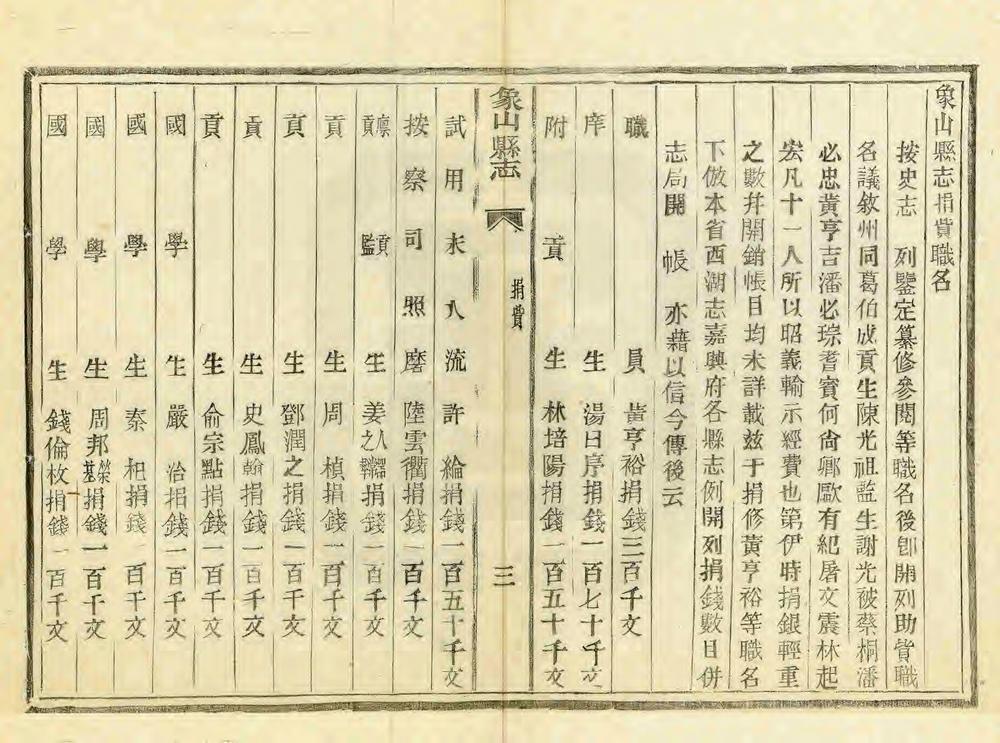 象山縣志捐貲職名
按史志　列鑒定纂修參閱等職名後卽開列助貲職
名議敘州同葛伯成貢生陳光祖監生謝光被蔡桐潘
必忠黃亨吉潘必琮耆賓何尙卿歐有紀屠文震林起
宏凡十一人所以昭義輸示經費也第伊時捐銀輕重
之數幷開銷帳目均未詳載兹于捐修黃亨裕等職名
下倣本省西湖志嘉興府各縣志例開列捐錢數目併
志局開　帳　亦藉以信今傳後云
職員黃亨裕捐錢三百千文
庠生湯日序捐錢一百七十千文
附貢生林培陽捐錢一百五十千文
象山縣志　捐貲　三
試用未入流許綸捐錢一百五十千文
按察司照磨陸雲衢捐錢一百千文
廩貢貢監生姜人之捐錢一百千文
貢生周楨捐錢一百千文
貢生鄧潤之捐錢一百千文
貢生史鳳翰捐錢一百千文
貢生俞宗點捐錢一百千文
國學生嚴治捐錢一百千文
國學生秦杞捐錢一百千文
國學生周邦榮基捐錢一百千文
國學生錢倫枚捐錢一百千文